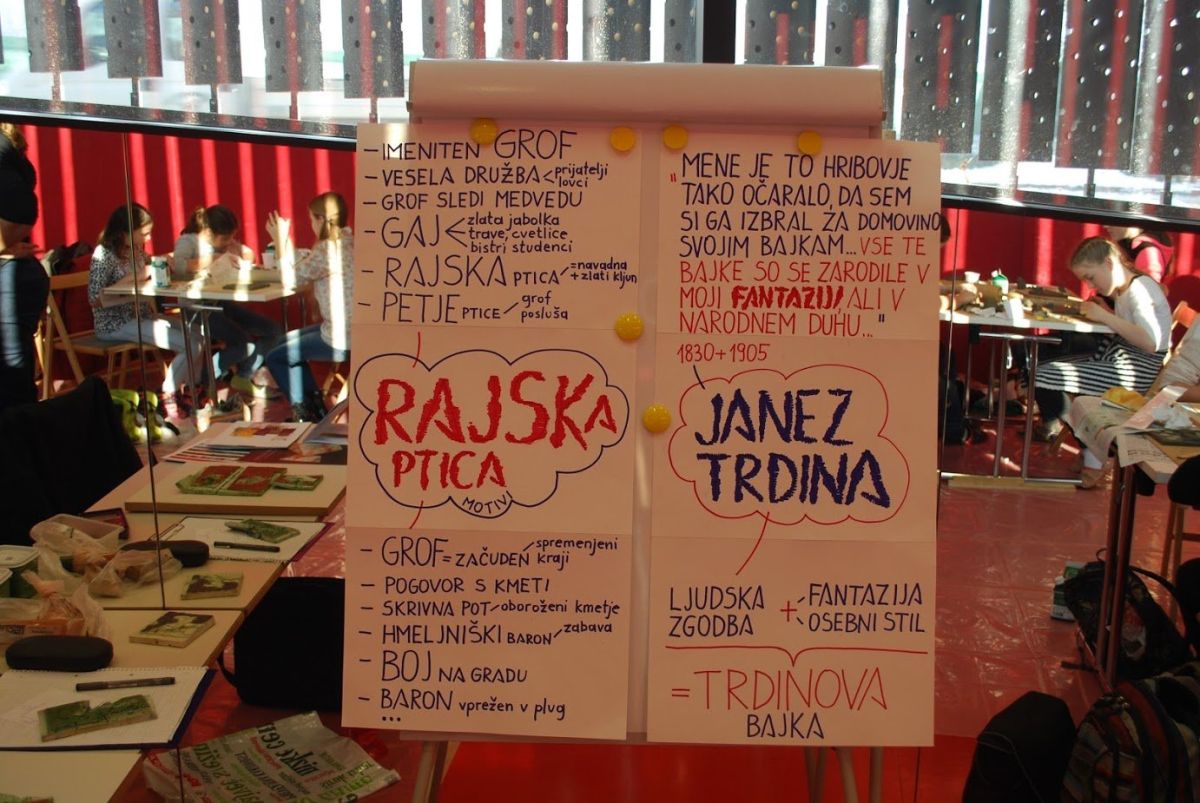 - IMENITEN GROF
- VESELA DRUŽBA < prijatelji
lovci
- GROF SLEDI MEDVEDU
- GAJ < zlata jabolka
trave, cvetlice
bistri studenci
- RAJSKA PTICA = navadna
+ zlati kljun
- PETJE PTICE grof
posluša
RAJSKA
PTICA
MOTIVI
- GROF = ZAČUDEN spremenjeni
kraji
- POGOVOR S KMETI
- SKRIVNA POT oboroženi kmetje
- HMELJNIŠKI BARON zabava
- BOJ NA GRADU
- BARON vprežen v plug
...
"MENE JE TO HRIBOVJE
TAKO OČARALO, DA SEM
SI GA IZBRAL ZA DOMOVINO
SVOJIM BAJKAM... VSE TE
BAJKE SO SE ZARODILE V
MOJI FANTAZIJI ALI V
NARODNEM DUHU..."
1830 + 1905
JANEZ
TRDINA
LJUDSKA
ZGODBA
+
FANTAZIJA
OSEBNI STIL
= TRDINOVA
BAJKA